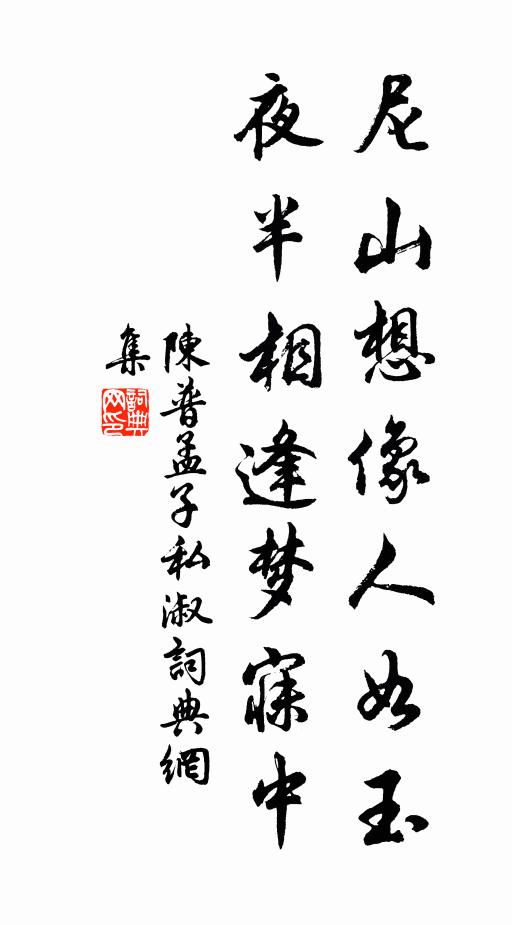 尼山想像人如玉
夜半相逢梦寐中
陳普孟子私淑詞典網
集
詞典网印